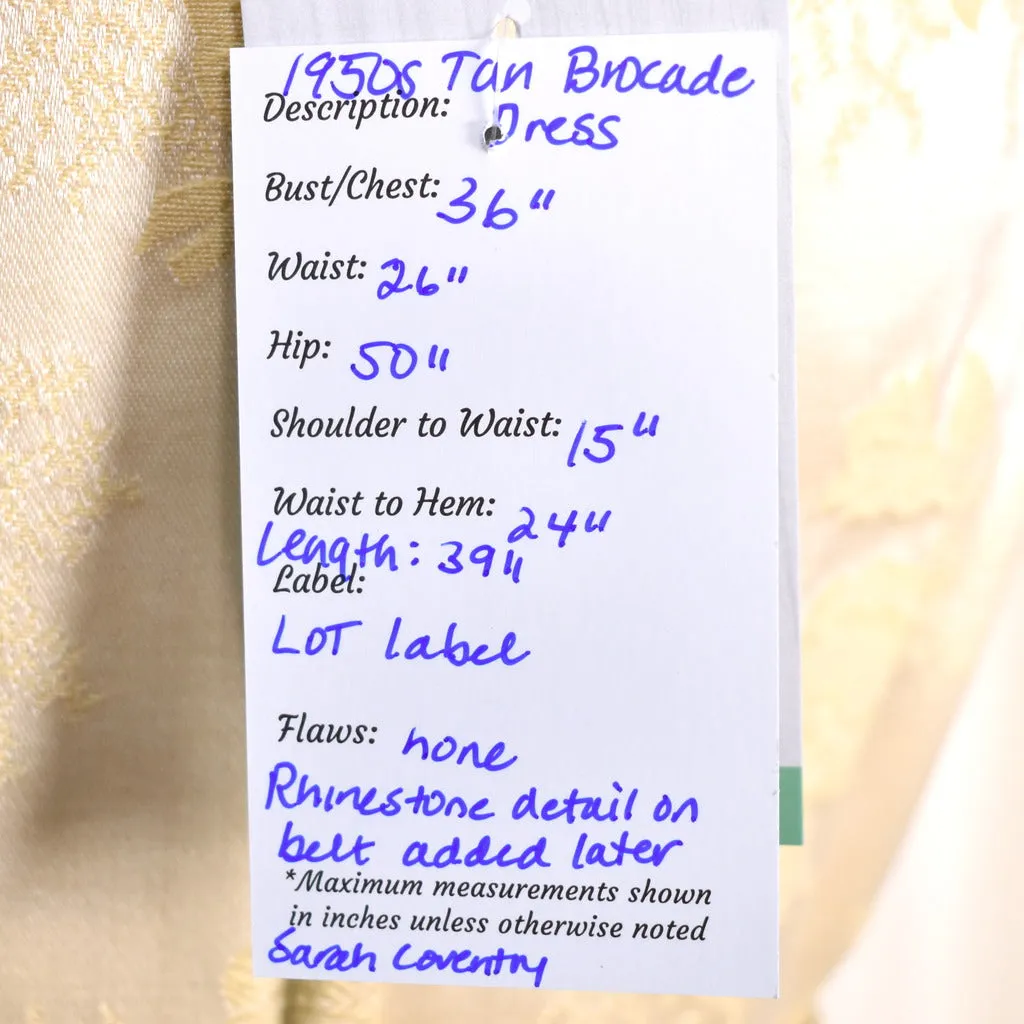 1950s Tan Brocade
Description: Dress
Bust/Chest: 36"
Waist: 26"
Hip: 50"
Shoulder to Waist: 15"
Waist to Hem: 24"
Length: 39"
Label:
LOT label
Flaws: none
Rhinestone detail on
belt added later
*Maximum measurements shown
in inches unless otherwise noted
Sarah Coventry